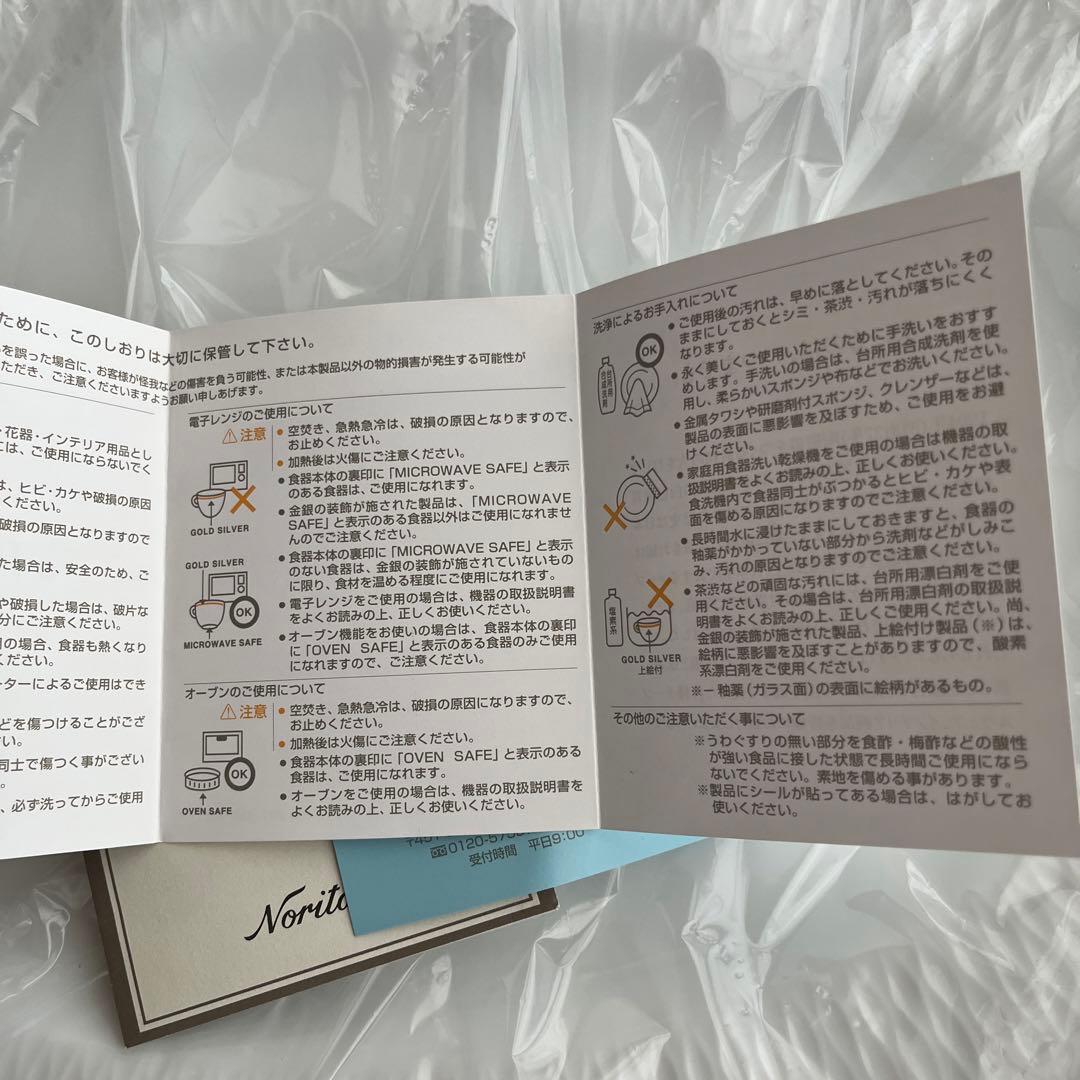 ために、このしおりは大切に保管して下さい。
を誤った場合に、お客様が怪我などの傷害を負う可能性、または本製品以外の物的損害が発生する可能性が
ただき、ご注意くださいますようお願い申しあげます。
・花器・インテリア用品とし
には、ご使用にならないでく
は、ヒビ・カケや破損の原因
ください。
破損の原因となりますので
た場合は、安全のため、ご
や破損した場合は、破片な
分にご注意ください。
の場合、食器も熱くなり
ださい。
ーターによるご使用はでき
どを傷つけることがござ
い。
同士で傷つく事がござい
、必ず洗ってからご使用
電子レンジのご使用について
⚠注意
● 空焚き、急熱急冷は、破損の原因となりますので、
お止めください。
● 加熱後は火傷にご注意ください。
● 食器本体の裏印に「MICROWAVE SAFE」と表示
のある食器は、ご使用になれます。
● 金銀の装飾が施された製品は、「MICROWAVE
SAFE」と表示のある食器以外はご使用になれませ
んのでご注意ください。
● 食器本体の裏印に「MICROWAVE SAFE」と表示
のない食器は、金銀の装飾が施されていないもの
に限り、食材を温める程度にご使用になれます。
● 電子レンジをご使用の場合は、機器の取扱説明書
をよくお読みの上、正しくお使いください。
● オーブン機能をお使いの場合は、食器本体の裏印
に「OVEN SAFE」と表示のある食器のみご使用
になれますので、ご注意ください。
GOLD SILVER
GOLD SILVER
OK
MICROWAVE SAFE
オーブンのご使用について
⚠注意
● 空焚き、急熱急冷は、破損の原因になりますので、
お止めください。
● 加熱後は火傷にご注意ください。
● 食器本体の裏印に「OVEN SAFE」と表示のある
食器は、ご使用になれます。
● オーブンをご使用の場合は、機器の取扱説明書を
よくお読みの上、正しくお使いください。
OK
OVEN SAFE
洗浄によるお手入れについて
● ご使用後の汚れは、早めに落としてください。その
ままにしておくとシミ・茶渋・汚れが落ちにくく
なります。
● 永く美しくご使用いただくために手洗いをおすす
めします。手洗いの場合は、台所用合成洗剤を使
用し、柔らかいスポンジや布などでお洗いください。
● 金属タワシや研磨剤付スポンジ、クレンザーなどは、
製品の表面に悪影響を及ぼすため、ご使用をお避
けください。
● 家庭用食器洗い乾燥機をご使用の場合は機器の取
扱説明書をよくお読みの上、正しくお使いください。
食洗機内で食器同士がぶつかるとヒビ・カケや表
面を傷める原因になりますのでご注意ください。
● 長時間水に浸けたままにしておきますと、食器の
釉薬がかかっていない部分から洗剤などがしみこ
み、汚れの原因となりますのでご注意ください。
● 茶渋などの頑固な汚れには、台所用漂白剤をご使
用ください。その場合は、台所用漂白剤の取扱説
明書をよくお読みの上、正しくご使用ください。尚、
金銀の装飾が施された製品、上絵付け製品(※)は、
絵柄に悪影響を及ぼすことがありますので、酸素
系漂白剤をご使用ください。
※－釉薬(ガラス面)の表面に絵柄があるもの。
OK
台所用
合成洗剤
塩素系
GOLD SILVER
上絵付
その他のご注意いただく事について
※うわぐすりの無い部分を食酢・梅酢などの酸性
が強い食品に接した状態で長時間ご使用になら
ないでください。素地を傷める事があります。
※製品にシールが貼ってある場合は、はがしてお
使いください。
0120-575
受付時間 平日9:00
Norita